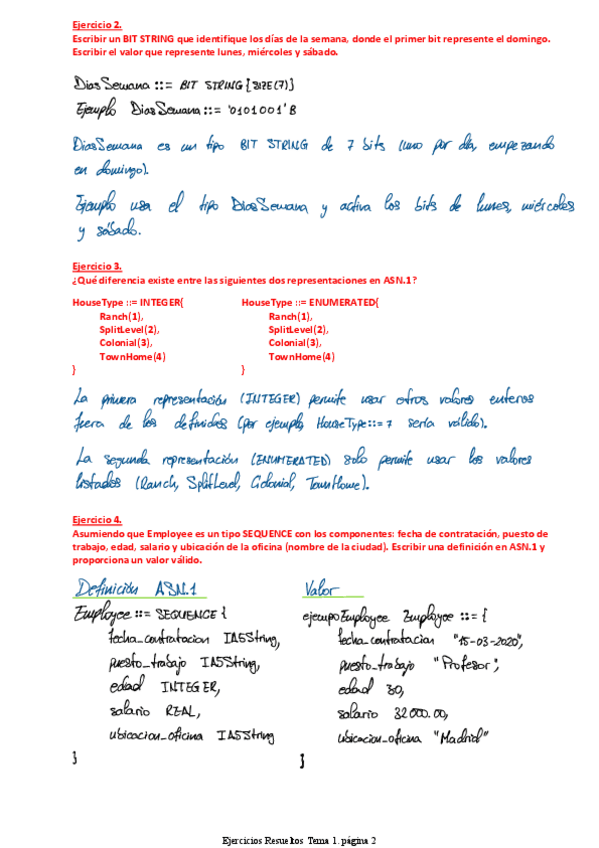 Ejercicio 2.
Escribir un BIT STRING que identifique los días de la semana, donde el primer bit represente el domingo.
Escribir el valor que represente lunes, miércoles y sábado.
DiasSemana ::= BIT STRING {SIZE(7)}
Ejemplo DiasSemana ::= '0101001'B
DiasSemana es un tipo BIT STRING de 7 bits (uno por día, empezando
en domingo).
Ejemplo usa el tipo DiasSemana y activa los bits de lunes, miércoles
y sábado.
Ejercicio 3.
¿Qué diferencia existe entre las siguientes dos representaciones en ASN.1?
HouseType ::= INTEGER{ HouseType ::= ENUMERATED{
Ranch(1), Ranch(1),
SplitLevel(2), SplitLevel(2),
Colonial(3), Colonial(3),
TownHome(4) TownHome(4)
} }
La primera representación (INTEGER) permite usar otros valores enteros
fuera de los definidos (por ejemplo, HouseType ::= 7 sería válido).
La segunda representación (ENUMERATED) solo permite usar los valores
listados (Ranch, SplitLevel, Colonial, TownHome).
Ejercicio 4.
Asumiendo que Employee es un tipo SEQUENCE con los componentes: fecha de contratación, puesto de
trabajo, edad, salario y ubicación de la oficina (nombre de la ciudad). Escribir una definición en ASN.1 y
proporciona un valor válido.
Definición ASN.1 Valor
Employee ::= SEQUENCE { ejempoEmployee Employee ::= {
fecha_contratacion IA5String, fecha_contratacion "15-03-2020",
puesto_trabajo IA5String, puesto_trabajo "Profesor",
edad INTEGER, edad 30,
salario REAL, salario 32000.00,
ubicacion_oficina IA5String ubicacion_oficina "Madrid"
} }
Ejercicios Resueltos Tema 1. página 2